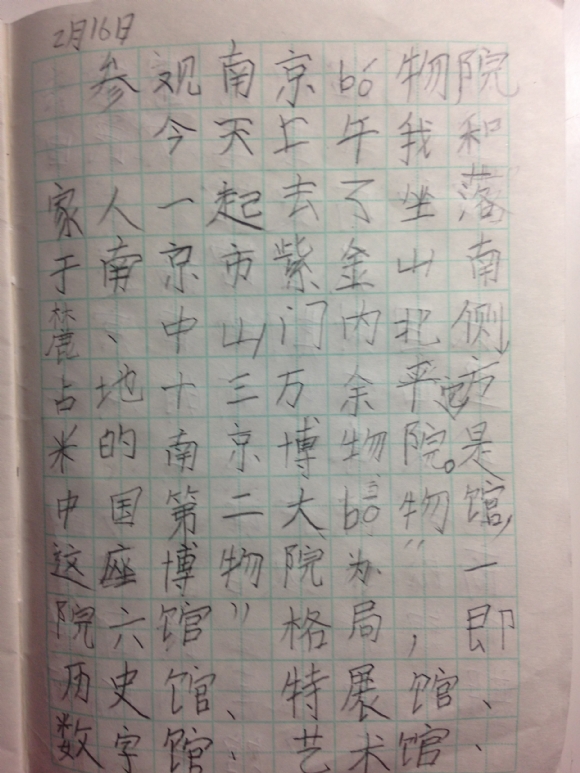 2月16日
参观南京bó物院
今天上午我和
家人一起去了坐落
于南京市紫金山南
麓、中山门内北侧,
占地十三万余平方
米的南京博物院。是
中国第二大bó物馆,
这座博物院为"一
院六馆"格局,即
历史馆、特展馆、
数字馆、艺术馆、